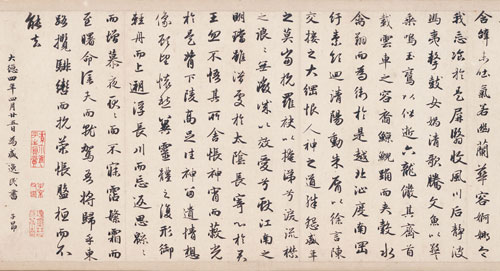 含辭未吐氣若幽蘭華容婀娜令
我忘飡於是屏翳收風川后静波
馮夷擊鼓女媧清歌騰文魚以警
乘鳴玉鸞以偕逝六龍儼其齊首
載雲車之容裔鯨鯢踴而夾轂水
禽翔而為衛於是越北沚度南岡
紆素領迴清陽動朱脣以徐言陳
交接之大綱恨人神之道殊怨盛年
之莫當抗羅袂以掩涕兮淚流襟
之浪〻無微情以效愛兮獻江南之
明璫雖潛處於太陰長寄心於君
王忽不悟其所舍悵神宵而蔽光
於是背下陵高足往神留遺情想
像顧望懷愁冀靈體之復形御
輕舟而上遡浮長川而忘返思綿〻
而增慕夜耿〻而不寐霑繁霜而
至曙命僕夫而就駕吾將歸乎東
路攬騑轡而抗策悵盤桓而不
能去
大德四年四月廿五日為盛逸民書 子昂